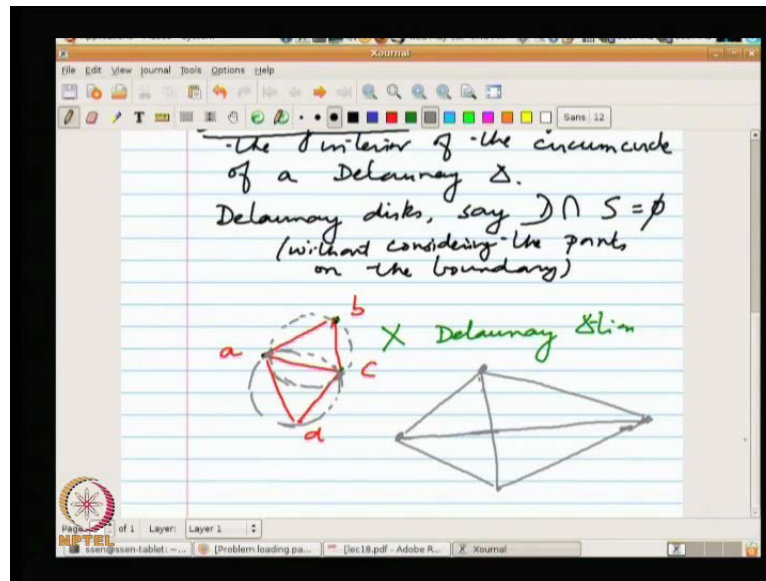 Xournal
File Edit View Journal Tools Options Help
Sans 12
the interior of the circumcircle
of a Delaunay Δ.
Delaunay disks, say D ∩ S = ϕ
(without considering the points
on the boundary)
b
X Delaunay Δtion
a
c
d
of 1 Layer: Layer 1
NPTEL
ssen@ssen-tablet: ~... [Problem loading pa... (lec18.pdf - Adobe R... Xournal